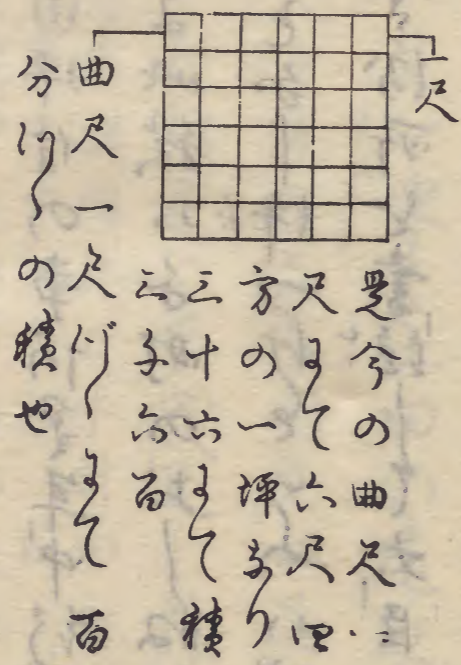 一尺
是今の曲尺二
尺にて六尺四
方の一坪なり
三十六にて積
三千六百
曲尺一尺づゝにて百
分づゝの積也